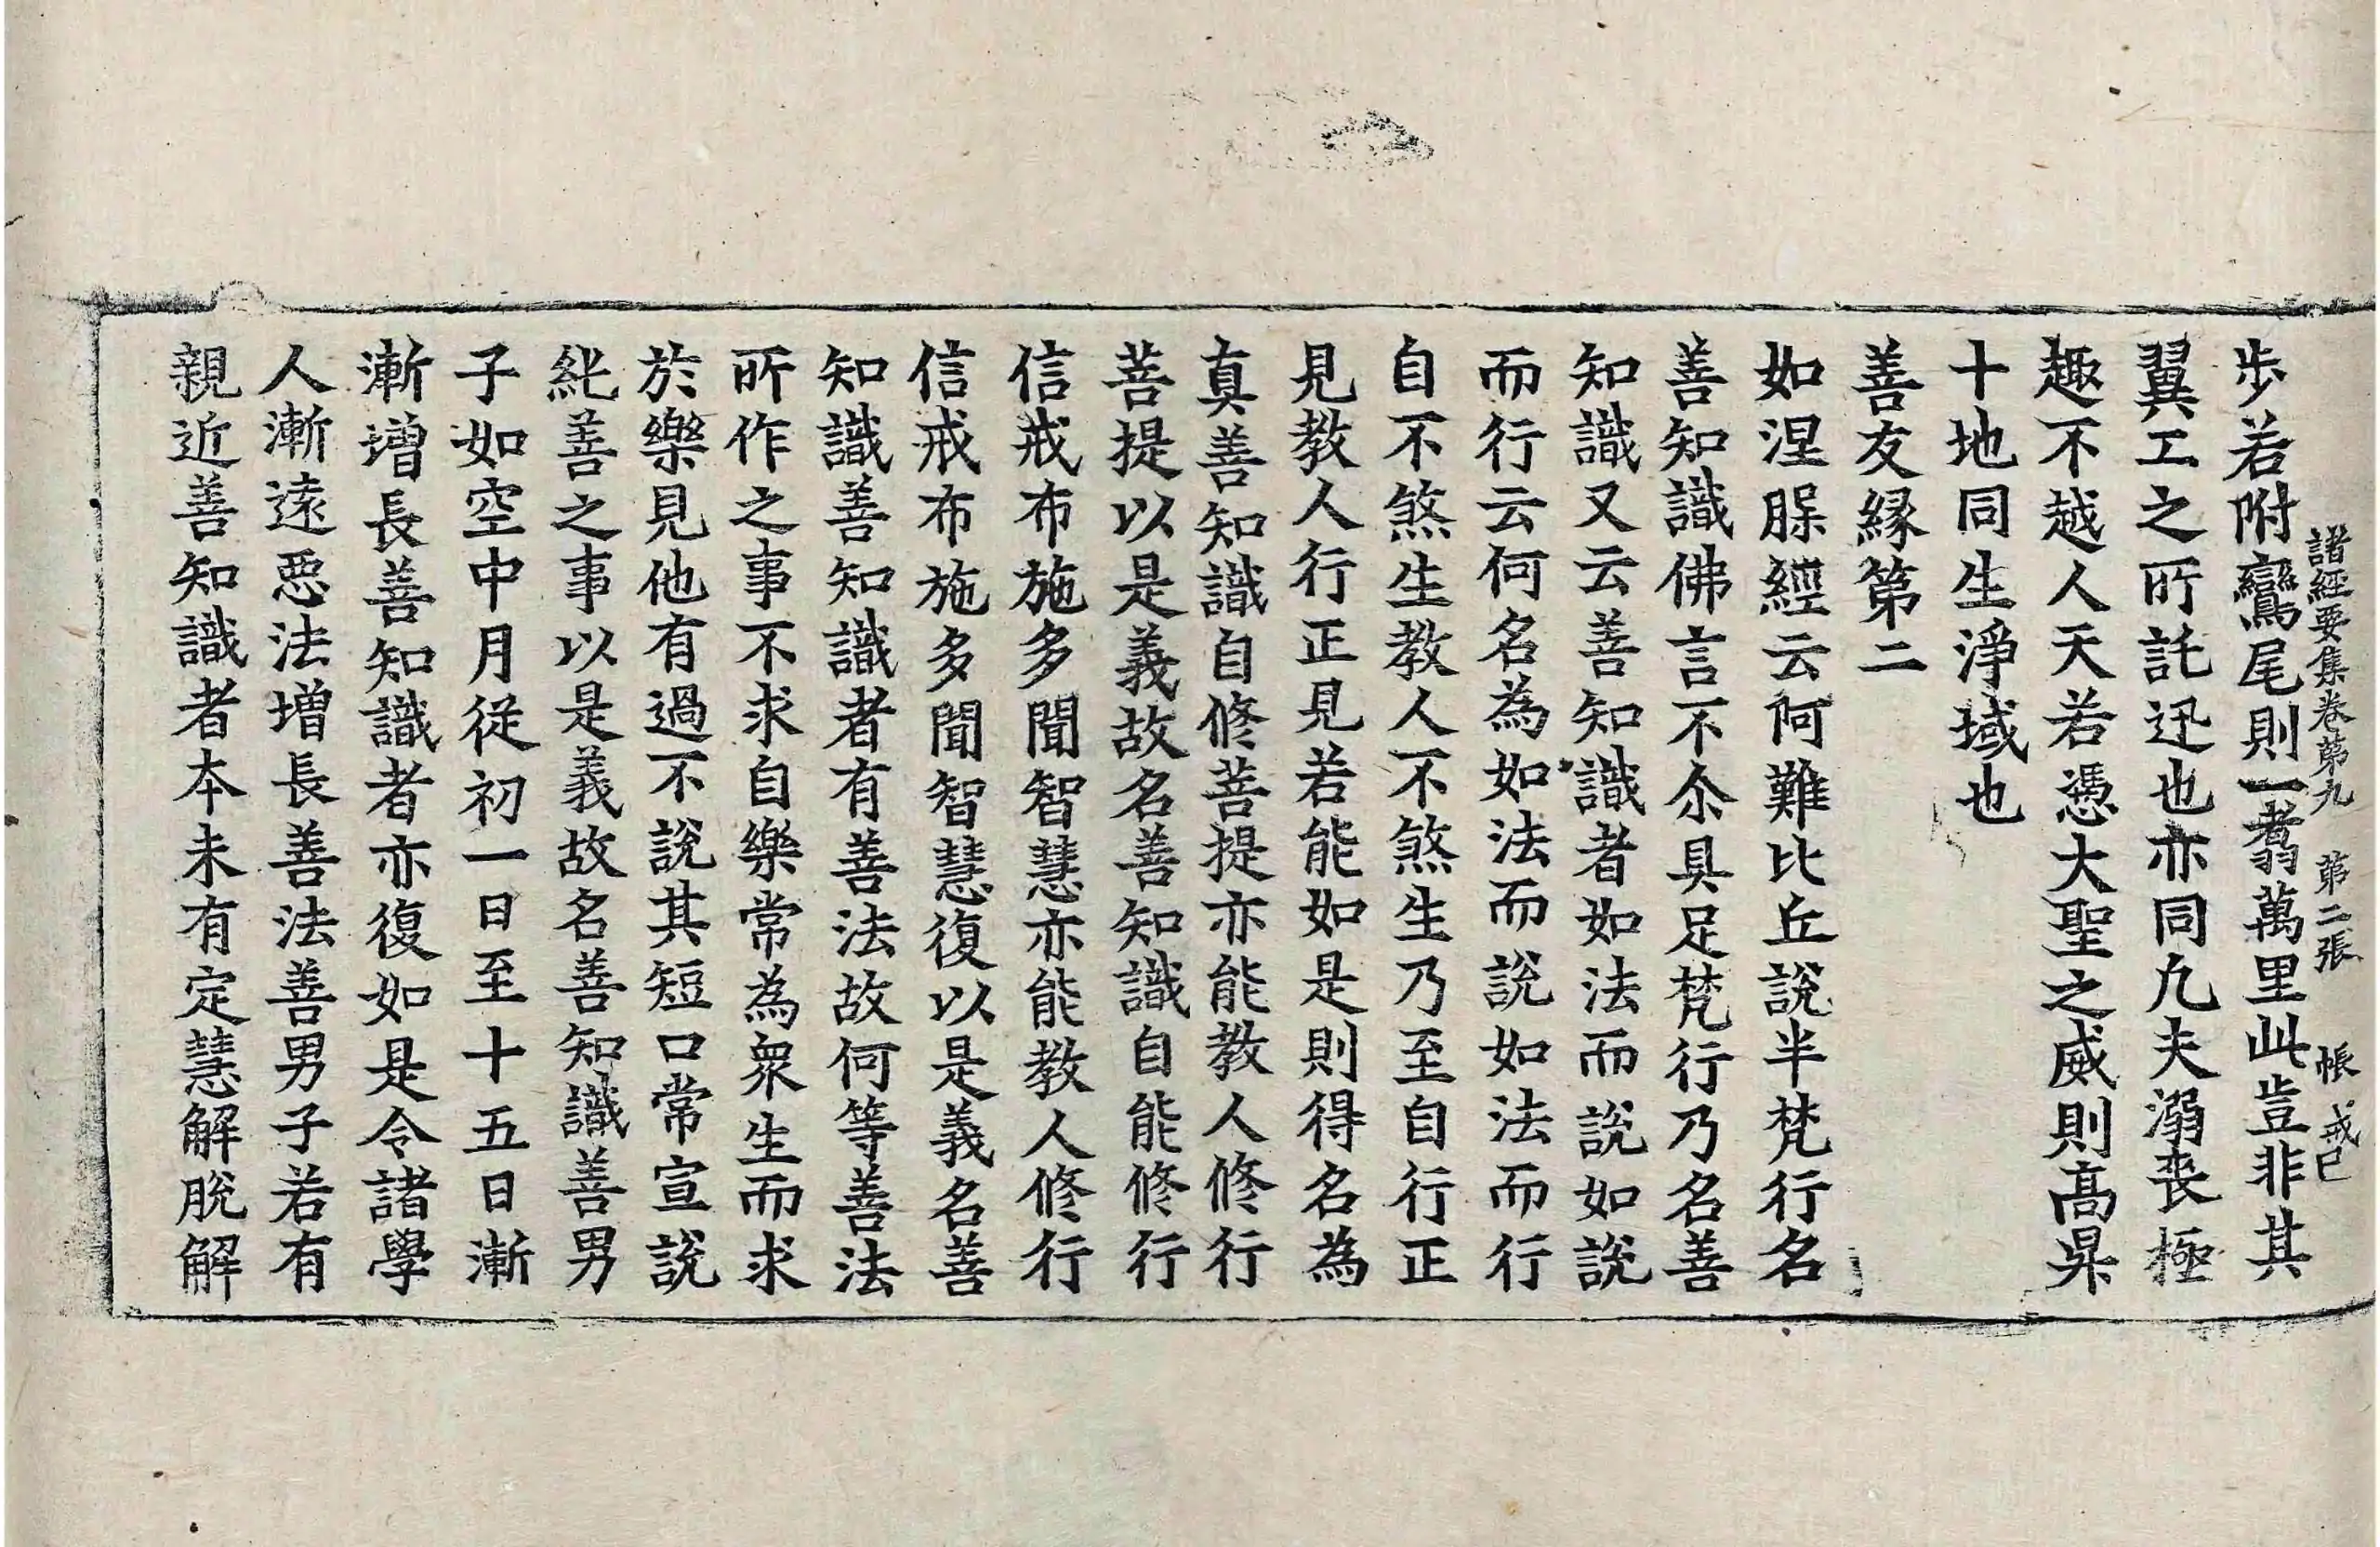 諸經要集卷苐九　苐二張　帳　戒巳
步若附鸞尾則一翥萬里此豈非其
翼工之所託迅也亦同凢夫溺喪極
趣不越人天若憑大聖之威則髙昇
十地同生淨域也
善友縁苐二
如涅脵經云阿難比丘說半梵行名
善知識佛言不尒具足梵行乃名善
知識又云善知識者如法而說如說
而行云何名為如法而說如法而行
自不煞生教人不煞生乃至自行正
見教人行正見若能如是則得名為
真善知識自修菩提亦能教人修行
菩提以是義故名善知識自能修行
信戒布施多聞智慧亦能教人修行
信戒布施多聞智慧復以是義名善
知識善知識者有善法故何等善法
所作之事不求自樂常為衆生而求
於樂見他有過不說其短口常宣說
純善之事以是義故名善知識善男
子如空中月從初一日至十五日漸
漸增長善知識者亦復如是令諸學
人漸遠惡法增長善法善男子若有
親近善知識者本未有定慧解脫解